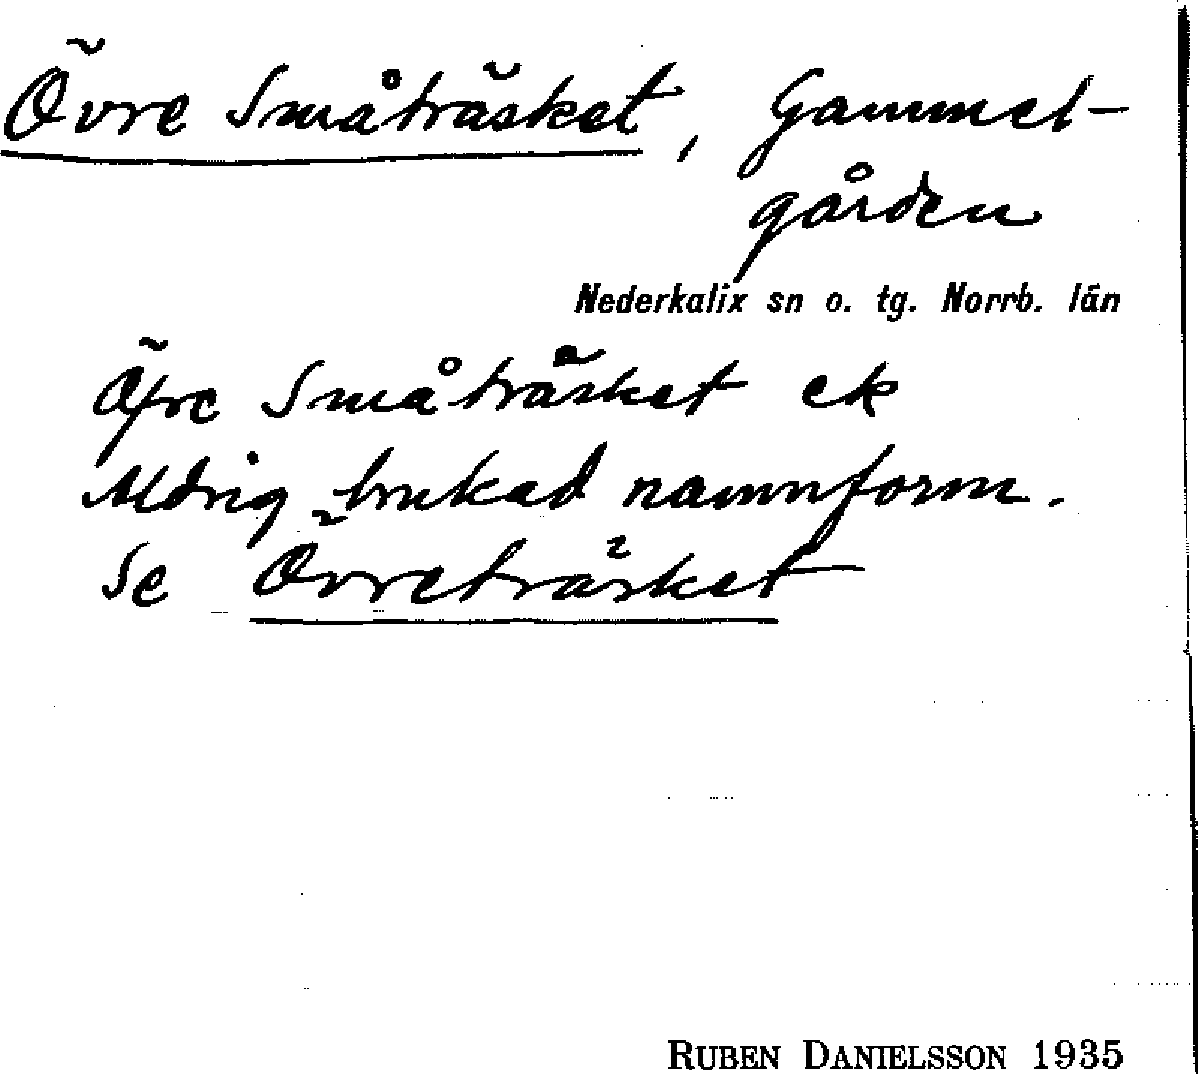 Övre Småträsket, Gammel-
gården
Nederkalix sn o. tg. Norrb. län
Öfre Småträsket ek
Aldrig brukad namnform.
Se Övreträsket
RUBEN DANIELSSON 1935